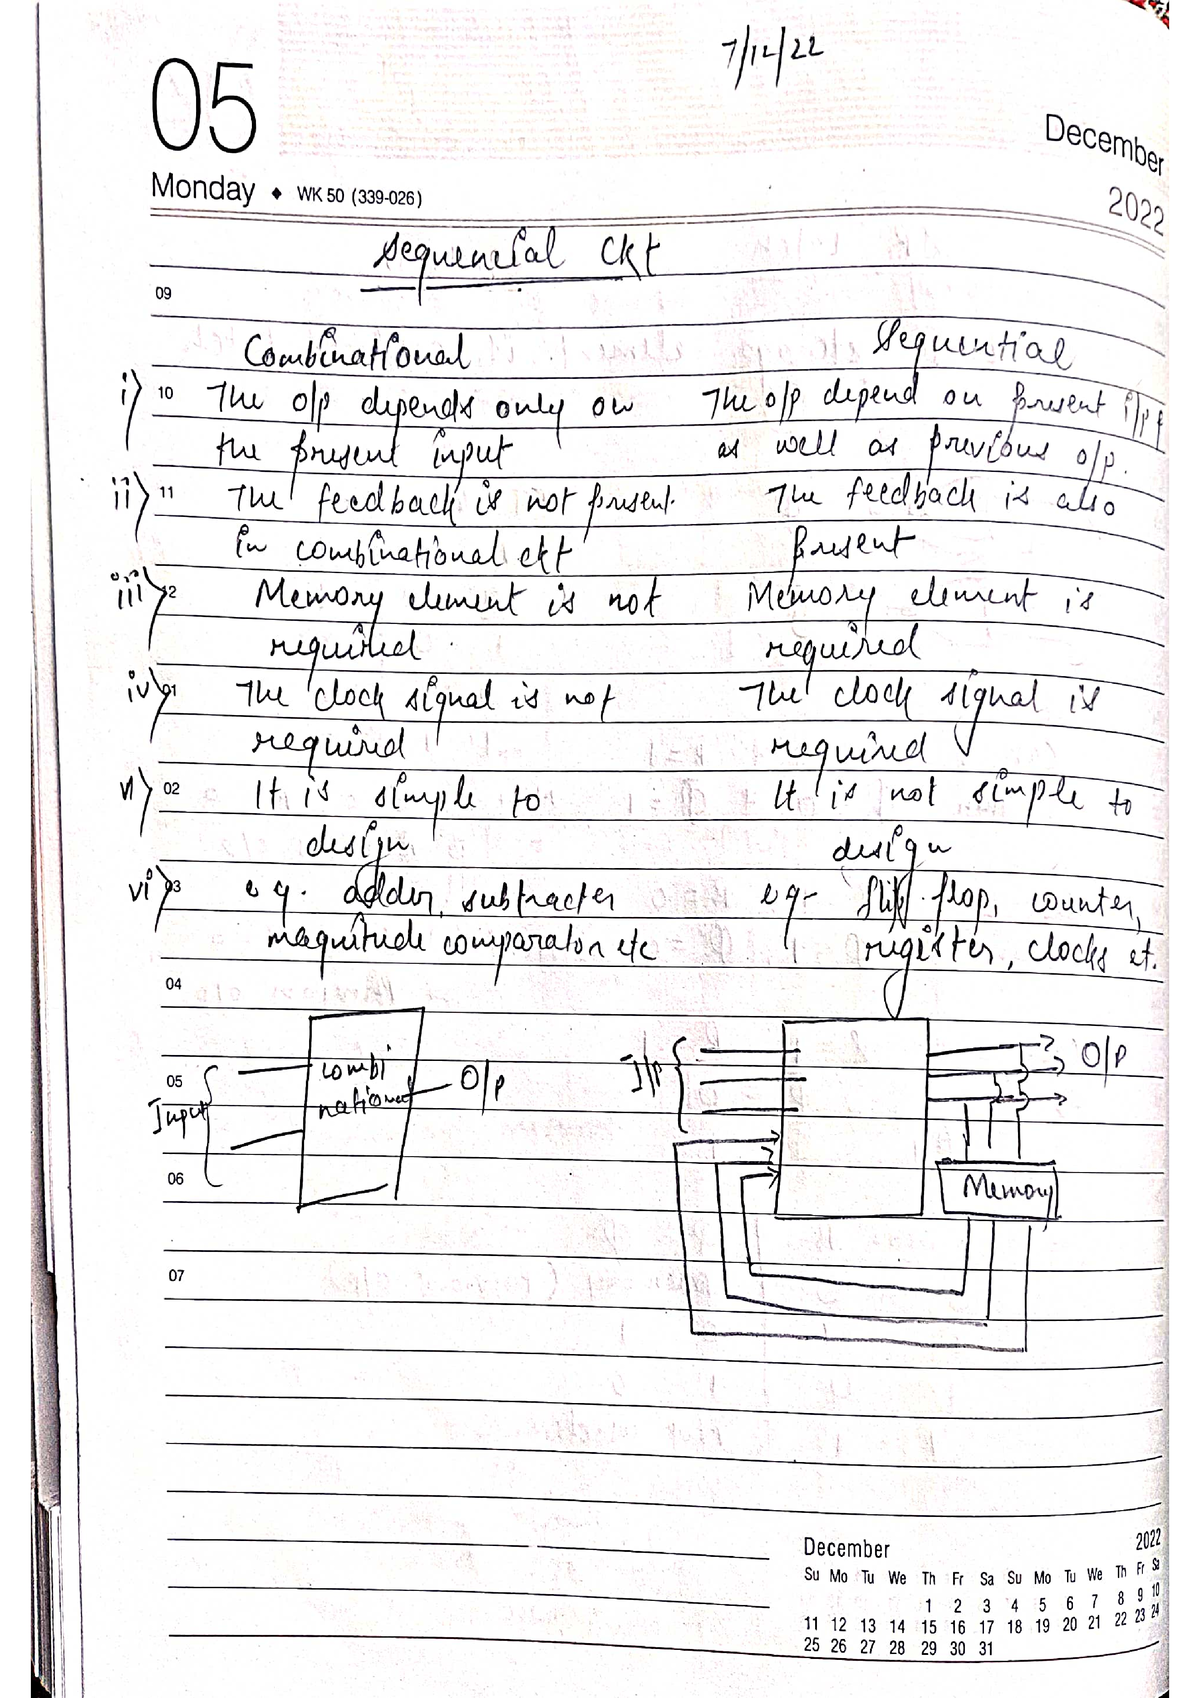 7/12/22
05
December
Monday ♦ WK 50 (339-026)
2022
Sequencial Ckt
09
Combinational Sequential
i) 10 The o/p depends only on The o/p depend on present i/p
the present input as well as previous o/p.
ii) 11 The feedback is not present. The feedback is also
in combinational ckt present
iii) 12 Memory element is not Memory element is
required required
iv) 01 The clock signal is not The clock signal is
required required
v) 02 It is simple to It is not simple to
design design
vi) 03 eg. adder, subtracter eg- flip flop, counter,
magnitude comparator etc register, clocks et.
04
combi
national
05
Input
O/P
I/p
O/P
06
Memory
07
December 2022
Su Mo Tu We Th Fr Sa Su Mo Tu We Th Fr Sa
1 2 3 4 5 6 7 8 9 10
11 12 13 14 15 16 17 18 19 20 21 22 23 24
25 26 27 28 29 30 31